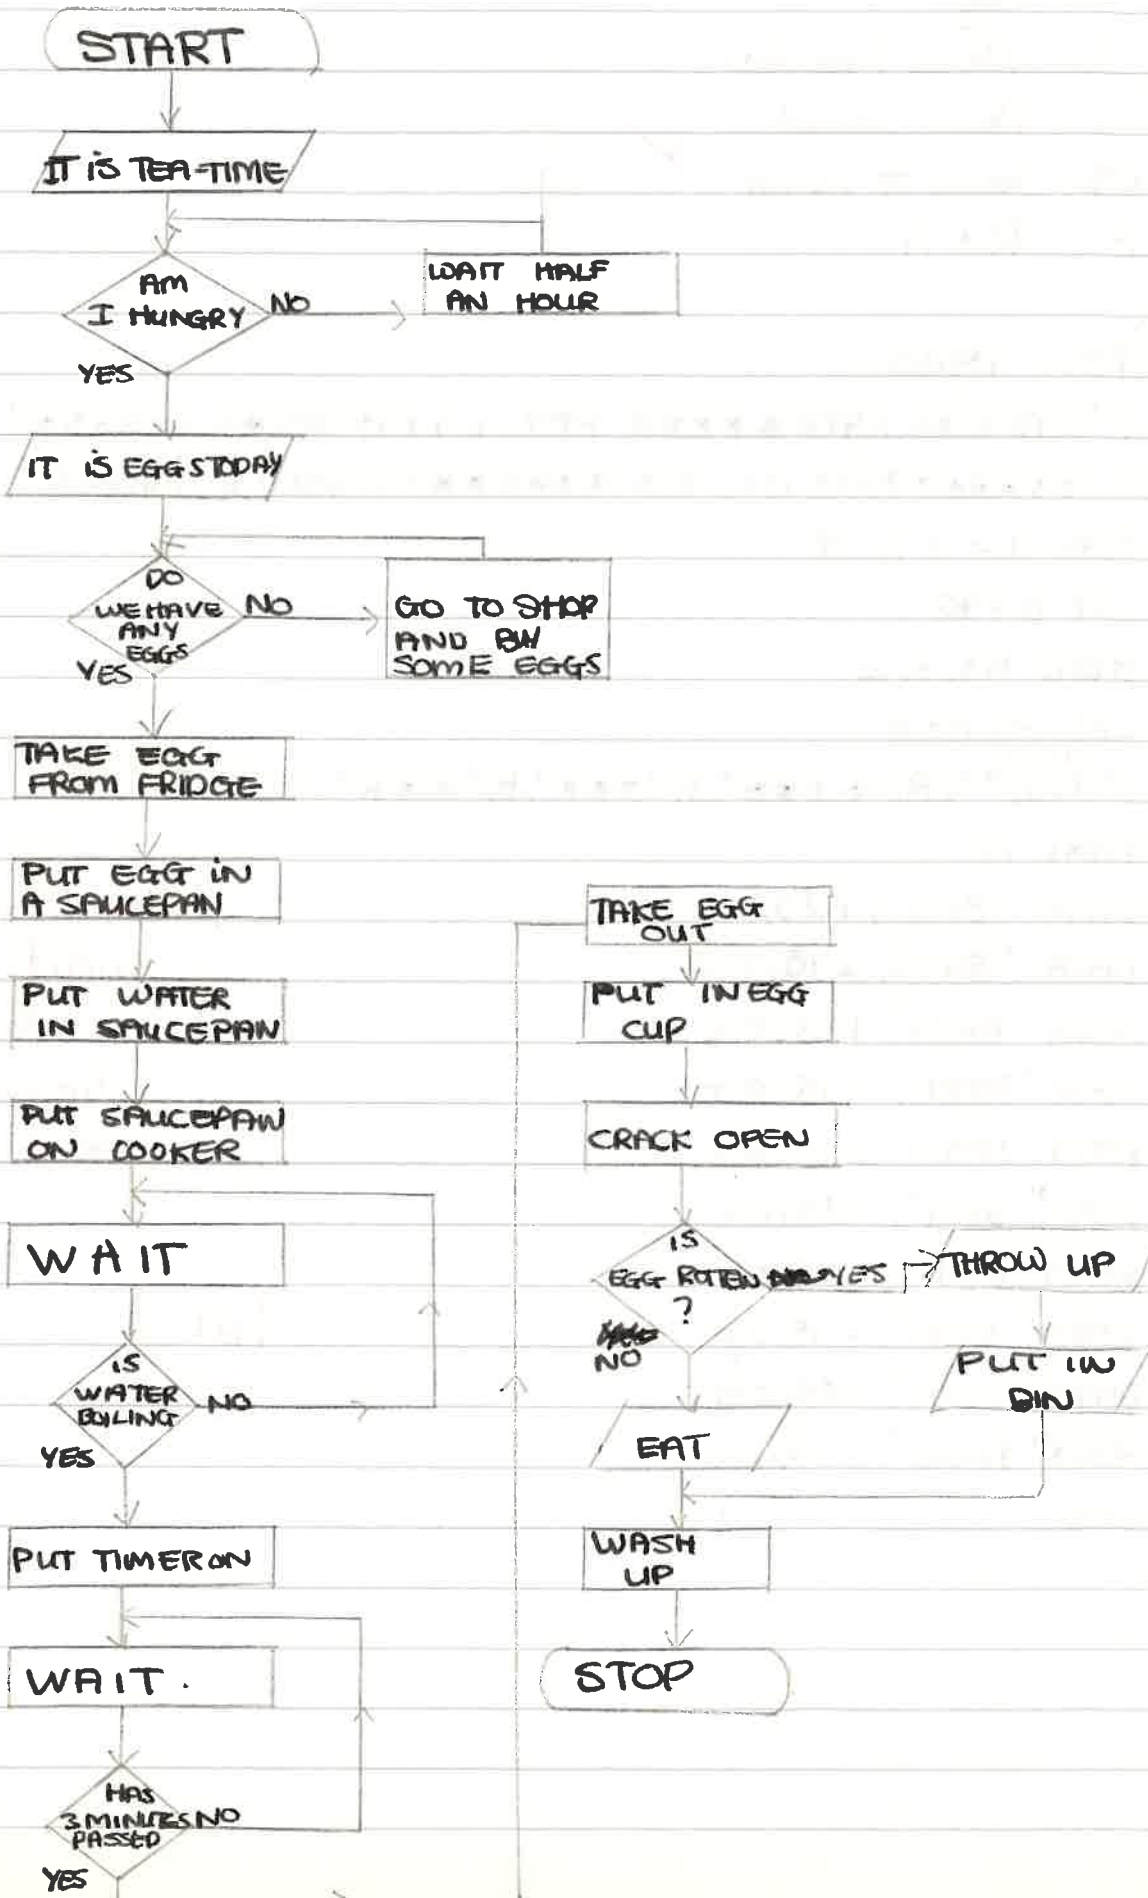 START
IT IS TEA-TIME
AM
I HUNGRY
NO
WAIT HALF
AN HOUR
YES
IT IS EGGS TODAY
DO
WE HAVE
ANY
EGGS
NO
GO TO SHOP
AND BUY
SOME EGGS
YES
TAKE EGG
FROM FRIDGE
PUT EGG IN
A SAUCEPAN
PUT WATER
IN SAUCEPAN
PUT SAUCEPAN
ON COOKER
WAIT
IS
WATER
BOILING
NO
YES
PUT TIMER ON
WAIT.
HAS
3 MINUTES
PASSED
NO
YES
TAKE EGG
OUT
PUT IN EGG
CUP
CRACK OPEN
IS
EGG ROTTEN
?
YES
NO
THROW UP
PUT IN
BIN
EAT
WASH
UP
STOP